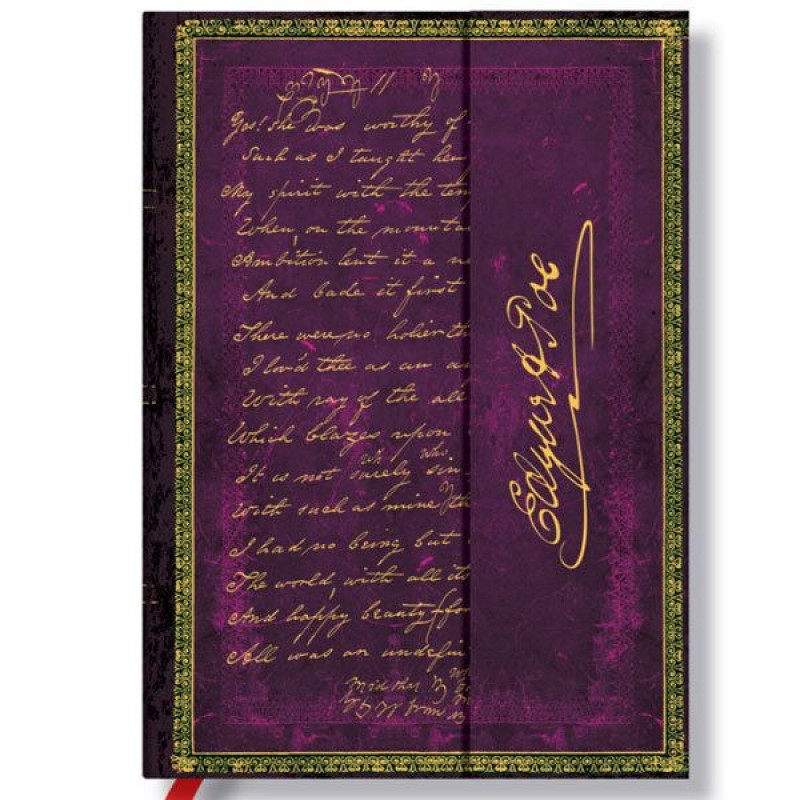 Yes! she was worthy of
Such as I taught her
My spirit with the tem
When, on the mounta
Ambition lent it a ne
And bade it first
There were no holier th
I lov'd thee as an an
With ray of the all
Which blazes upon
It is not surely sin
With such as mine
I had no being but
The world, with all its
And happy beauty (for
All was an undefin
Edgar A Poe